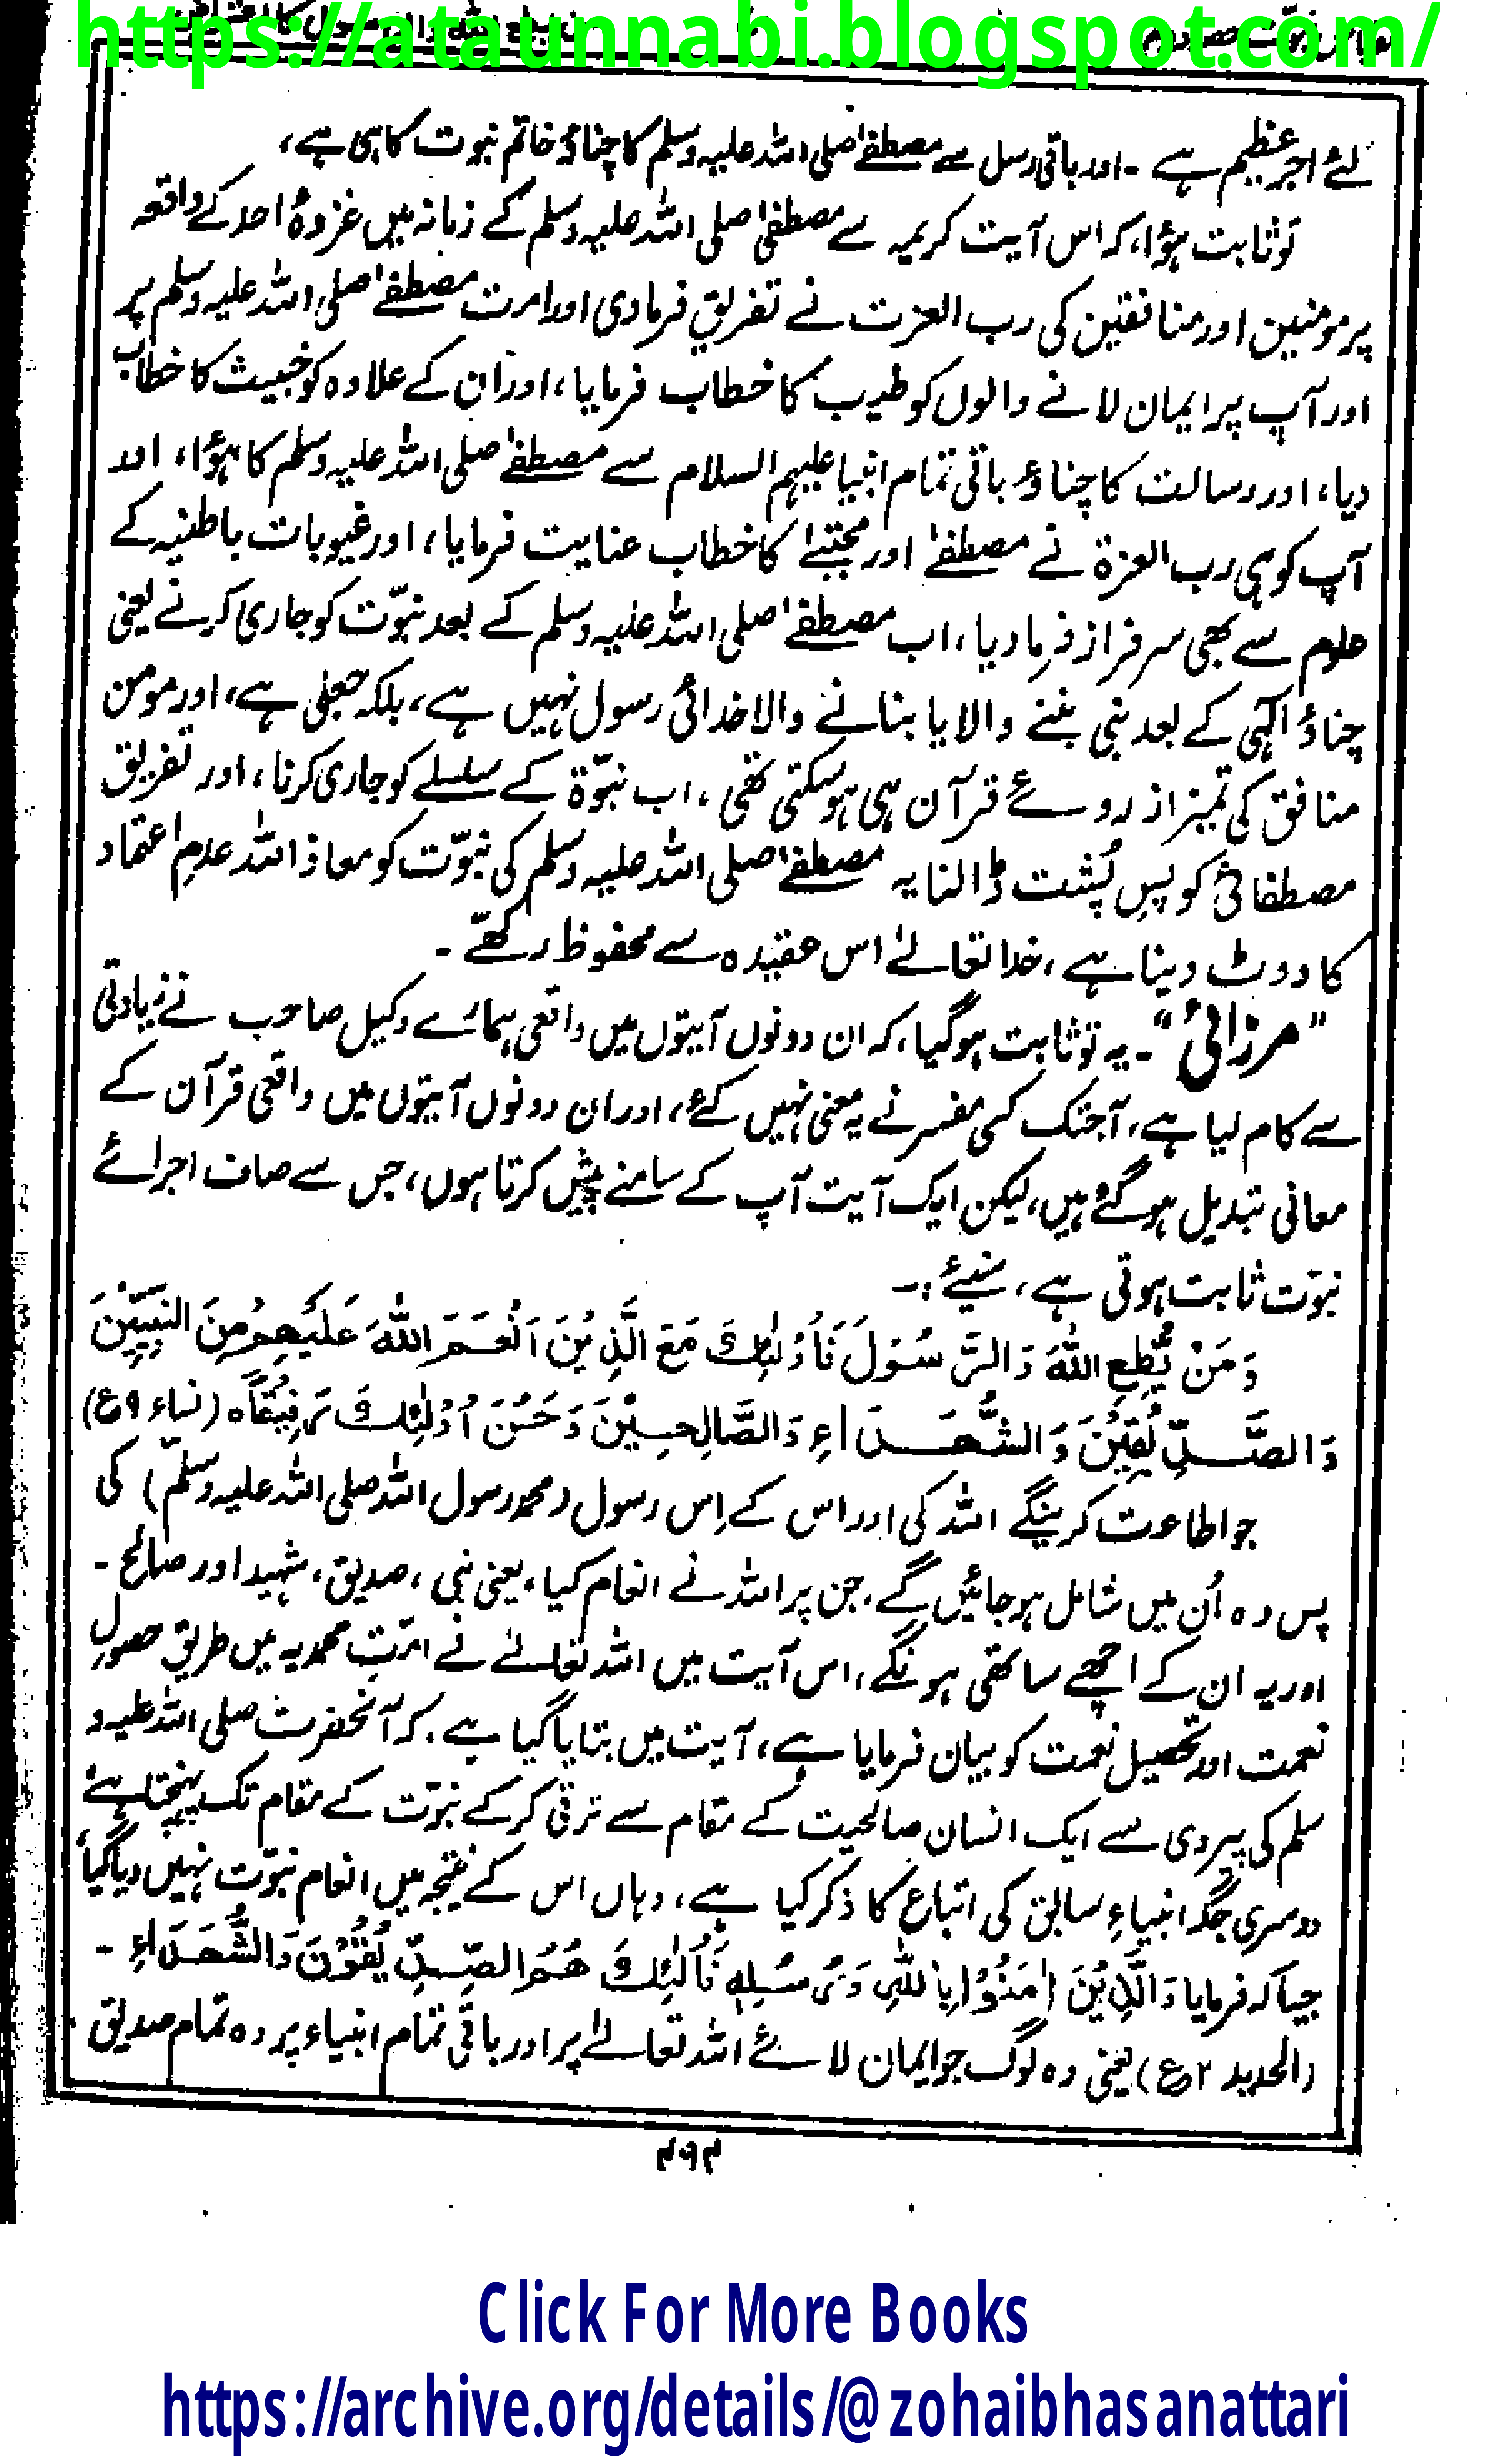 https://ataunnabi.blogspot.com/
لئے اجر عظیم ہے ۔ اور باقی رسل سے مصطفےٰ صلی اللہ علیہ وسلم کا چناؤ خاتم نبوت کا ہی ہے،
تو ثابت ہؤا، کہ اس آیت کریمہ سے مصطفیٰ صلی اللہ علیہ وسلم کے زمانہ میں غزوۂ احد کے واقعہ
پر مومنین اور منافقین کی رب العزت نے تفریق فرما دی اور امت مصطفےٰ صلی اللہ علیہ وسلم پر
اور آپ پر ایمان لانے والوں کو طیب کا خطاب فرمایا، اور ان کے علاوہ کو خبیث کا خطاب
دیا، اور رسالت کا چناؤ باقی تمام انبیا علیہم السلام سے مصطفےٰ صلی اللہ علیہ وسلم کا ہؤا، اور
آپ کو ہی رب العزۃ نے مصطفےٰ اور مجتبےٰ کا خطاب عنایت فرمایا، اور غیوبات باطنیہ کے
علوم سے بھی سرفراز فرما دیا، اب مصطفےٰ صلی اللہ علیہ وسلم کے بعد نبوّت کو جاری کرنے یعنی
چناؤ الٰہی کے بعد نبی بننے والا یا بنانے والا خدائی رسول نہیں ہے، بلکہ جعلی ہے، اور مومن
منافق کی تمیز از روئے قرآن ہی ہو سکتی تھی، اب نبوّۃ کے سلسلے کو جاری کرنا، اور تفریق
مصطفائی کو پسِ پُشت ڈالنا یہ مصطفےٰ صلی اللہ علیہ وسلم کی نبوّت کو معاذ اللہ عدمِ اعتماد
کا ووٹ دینا ہے، خدا تعالےٰ اس عقیدہ سے محفوظ رکھے ۔
”مرزائی“ ۔ یہ تو ثابت ہو گیا، کہ ان دونوں آیتوں میں واقعی ہمارے وکیل صاحب نے زیادتی
سے کام لیا ہے، آجتک کسی مفسر نے یہ معنی نہیں کئے، اور ان دونوں آیتوں میں واقعی قرآن کے
معانی تبدیل ہو گئے ہیں، لیکن ایک آیت آپ کے سامنے پیش کرتا ہوں، جس سے صاف اجرائے
نبوّت ثابت ہوتی ہے، سنیئے :۔
وَمَنْ يُّطِعِ اللّٰهَ وَالرَّسُوْلَ فَاُولٰئِكَ مَعَ الَّذِيْنَ اَنْعَمَ اللّٰهُ عَلَيْهِمْ مِنَ النَّبِيّٖنَ
وَالصِّدِّيْقِيْنَ وَالشُّهَدَاءِ وَالصَّالِحِيْنَ وَحَسُنَ اُولٰئِكَ رَفِيْقًا ہ (نساء ۹ع)
جو اطاعت کرینگے اللہ کی اور اس کے اِس رسول (محمد رسول اللہ صلی اللہ علیہ وسلم) کی
پس وہ اُن میں شامل ہو جائیں گے، جن پر اللہ نے انعام کیا، یعنی نبی، صدیق، شہید اور صالح ۔
اور یہ ان کے اچھے ساتھی ہونگے، اس آیت میں اللہ تعالےٰ نے امّتِ محمدیہ میں طریقِ حصولِ
نعمت اور تحصیل نعمت کو بیان فرمایا ہے، آیت میں بتایا گیا ہے، کہ آنحضرت صلی اللہ علیہ و
سلم کی پیروی سے ایک انسان صالحیت کے مقام سے ترقی کر کے نبوّت کے مقام تک پہنچتا ہے
دوسری جگہ انبیاءِ سابق کی اتباع کا ذکر کیا ہے، وہاں اس کے نتیجہ میں انعام نبوّت نہیں دیا گیا
جیسا کہ فرمایا وَالَّذِيْنَ اٰمَنُوْا بِاللّٰهِ وَرُسُلِهٖ فَاُلٰئِكَ هُمُ الصِّدِّيْقُوْنَ وَالشُّهَدَاءِ ۔
(الحدید ۲ع) یعنی وہ لوگ جو ایمان لائے اللہ تعالےٰ پر اور باقی تمام انبیاء پر وہ تمام صدیق
۴۹۴
Click For More Books
https://archive.org/details/@zohaibhasanattari